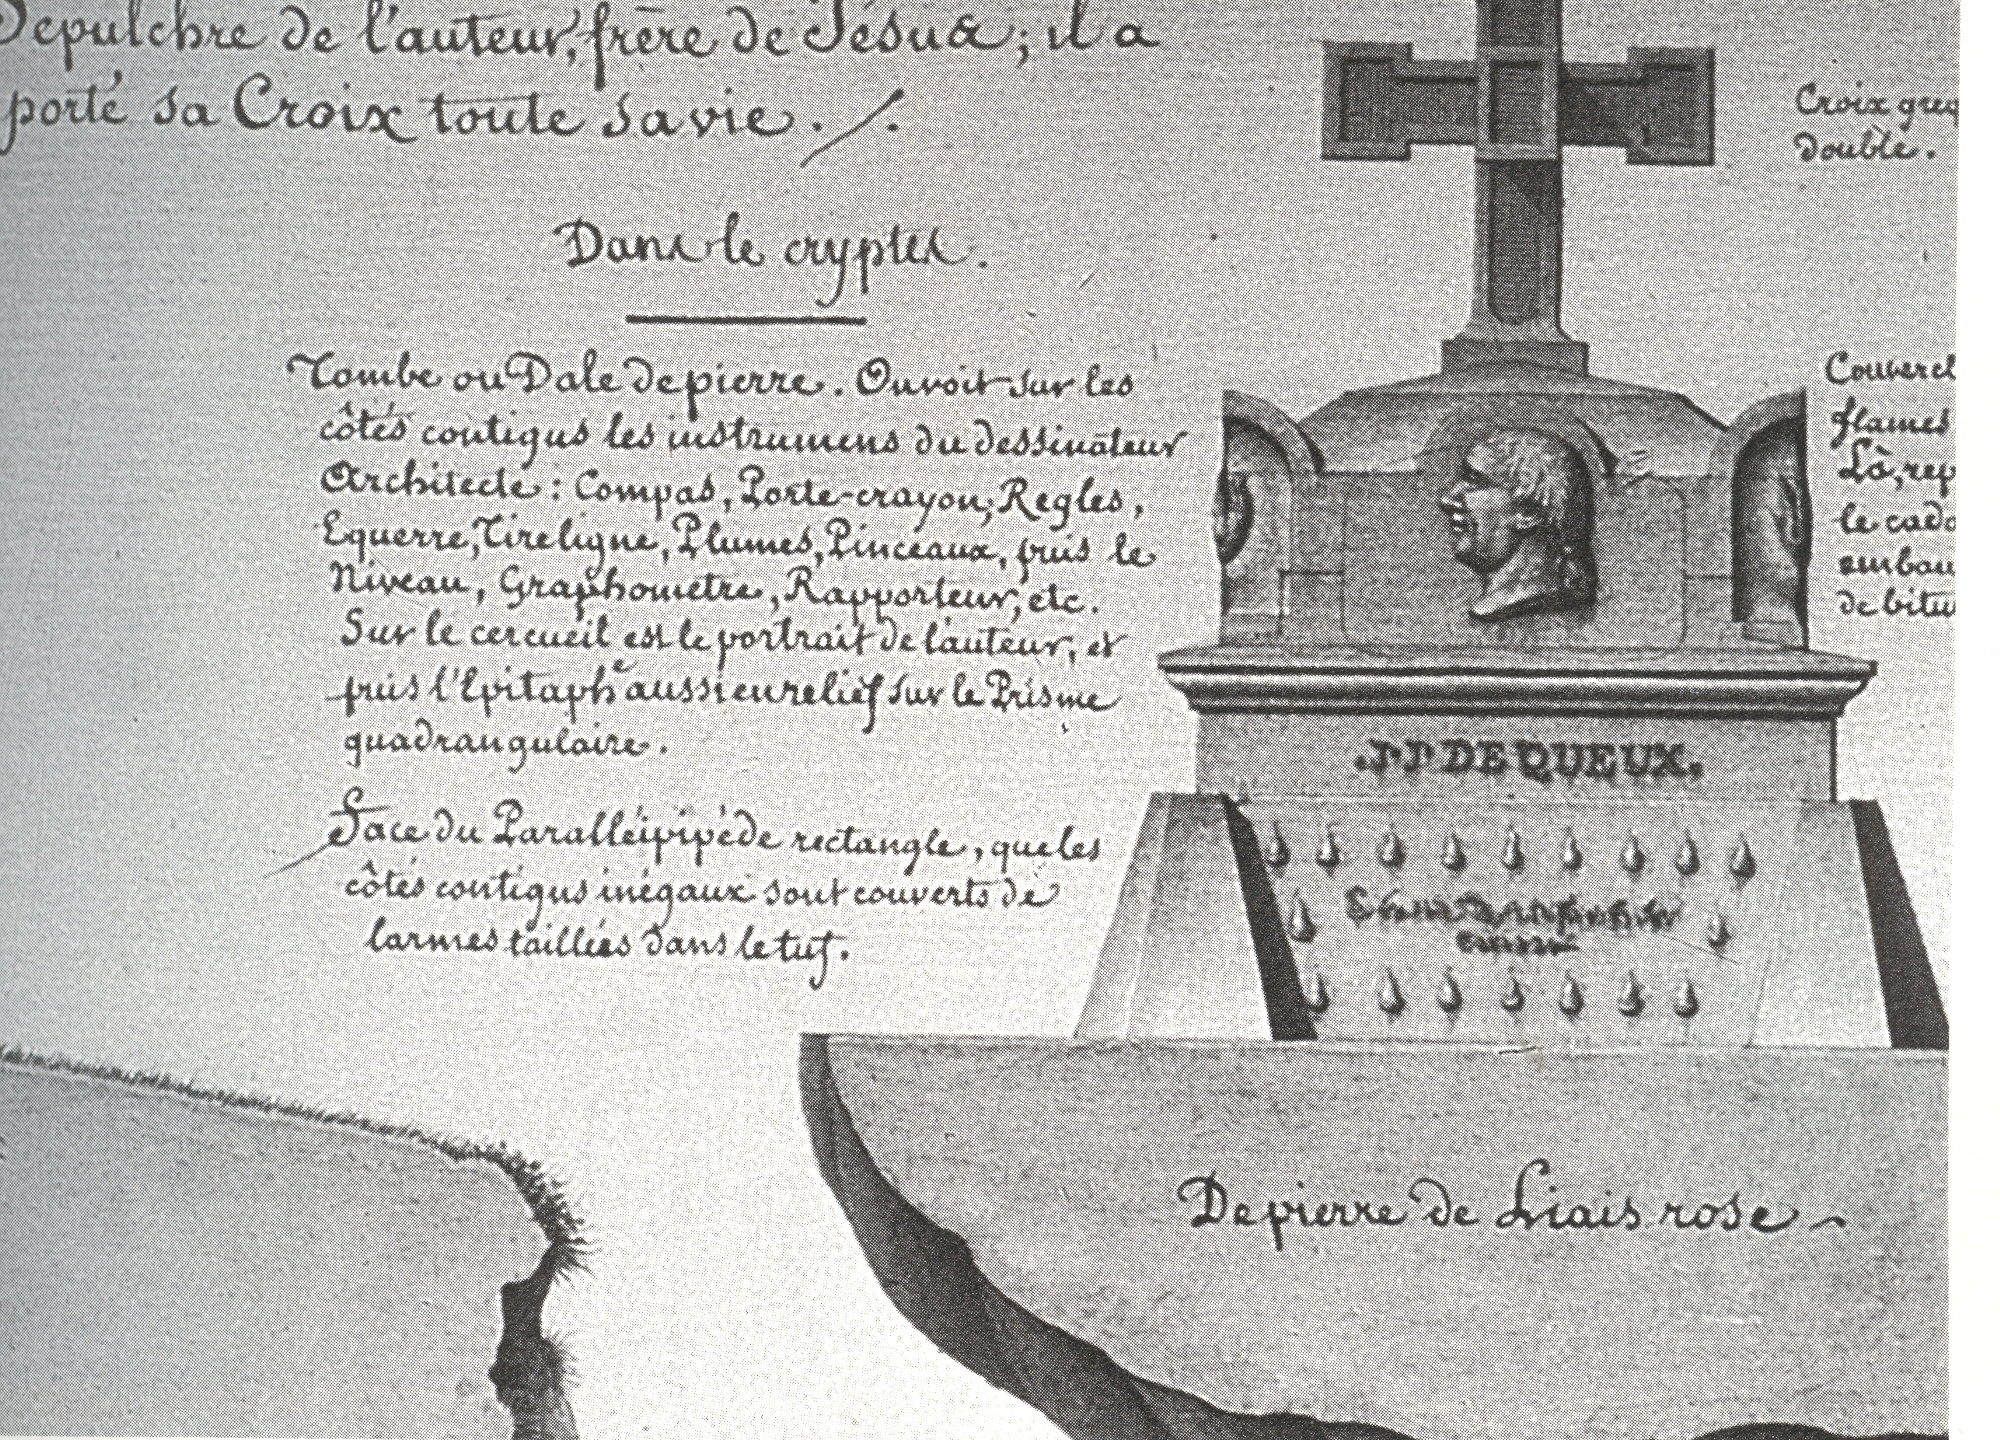 Sepulchre de l'auteur, frère de Jésus; il a
porté sa Croix toute sa vie.
Dans le cryptes.
Tombe ou Dale de pierre. On voit sur les
côtés contigus les instrumens du dessinateur
Architecte: Compas, Porte-crayon, Regles,
Equerre, Tireligne, Plumes, Pinceaux, puis le
Niveau, Graphometre, Rapporteur, etc.
Sur le cercueil est le portrait de l'auteur, et
puis l'Epitaphe aussi en relief sur le Prisme
quadrangulaire.
Face du Paralléipipède rectangle, que les
côtés contigus inégaux sont couverts de
larmes taillées dans le tuf.
Croix greq
double.
Couvercl
flames
Là, rep
le cada
embau
de bitu
.JJ DE QUEUX.
De pierre de Liais rose